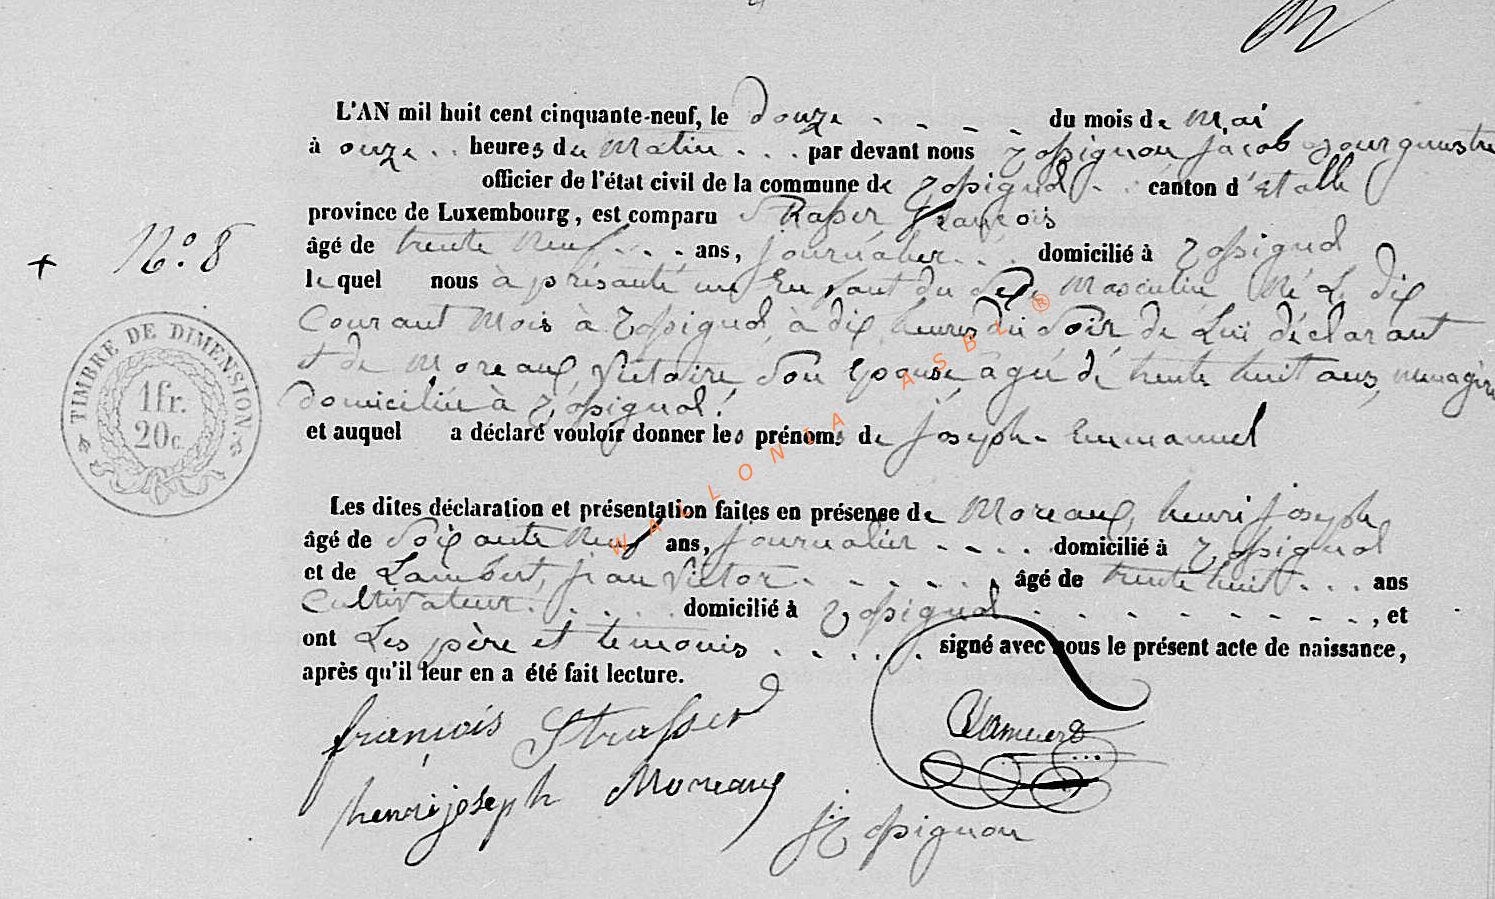 L'AN mil huit cent cinquante-neuf, le douze du mois de Mai
à onze heures du Matin par devant nous Rossignon Jacob Bourgumestre
officier de l'état civil de la commune de Rossignol canton d'Etalle
province de Luxembourg, est comparu Strasser François
âgé de trente neuf ans, journalier domicilié à Rossignol
lequel nous à présenté un Enfant du Sexe Masculin Né Le dix
Courant Mois à Rossignol, à dix heures du Soir, de Lui déclarant
et de Moreaux, Victoire Son Epouse âgé de trente huit ans, menagère
domiciliée à Rossignol.
et auquel a déclaré vouloir donner les prénoms de Joseph- Emmanuel
N°. 8
TIMBRE DE DIMENSION.
1fr.
20c.
Les dites déclaration et présentation faites en présense de Moreaux, henri joseph
âgé de Soixante Neuf ans, journalier domicilié à Rossignol
et de Lambert, jean Victor âgé de trente huit ans
Cultivateur. domicilié à Rossignol, et
ont Les père et temoins signé avec nous le présent acte de naissance,
après qu'il leur en a été fait lecture.
françois Strasser
henri joseph Moreaux
Rossignon
WALLONIA ASBL ®